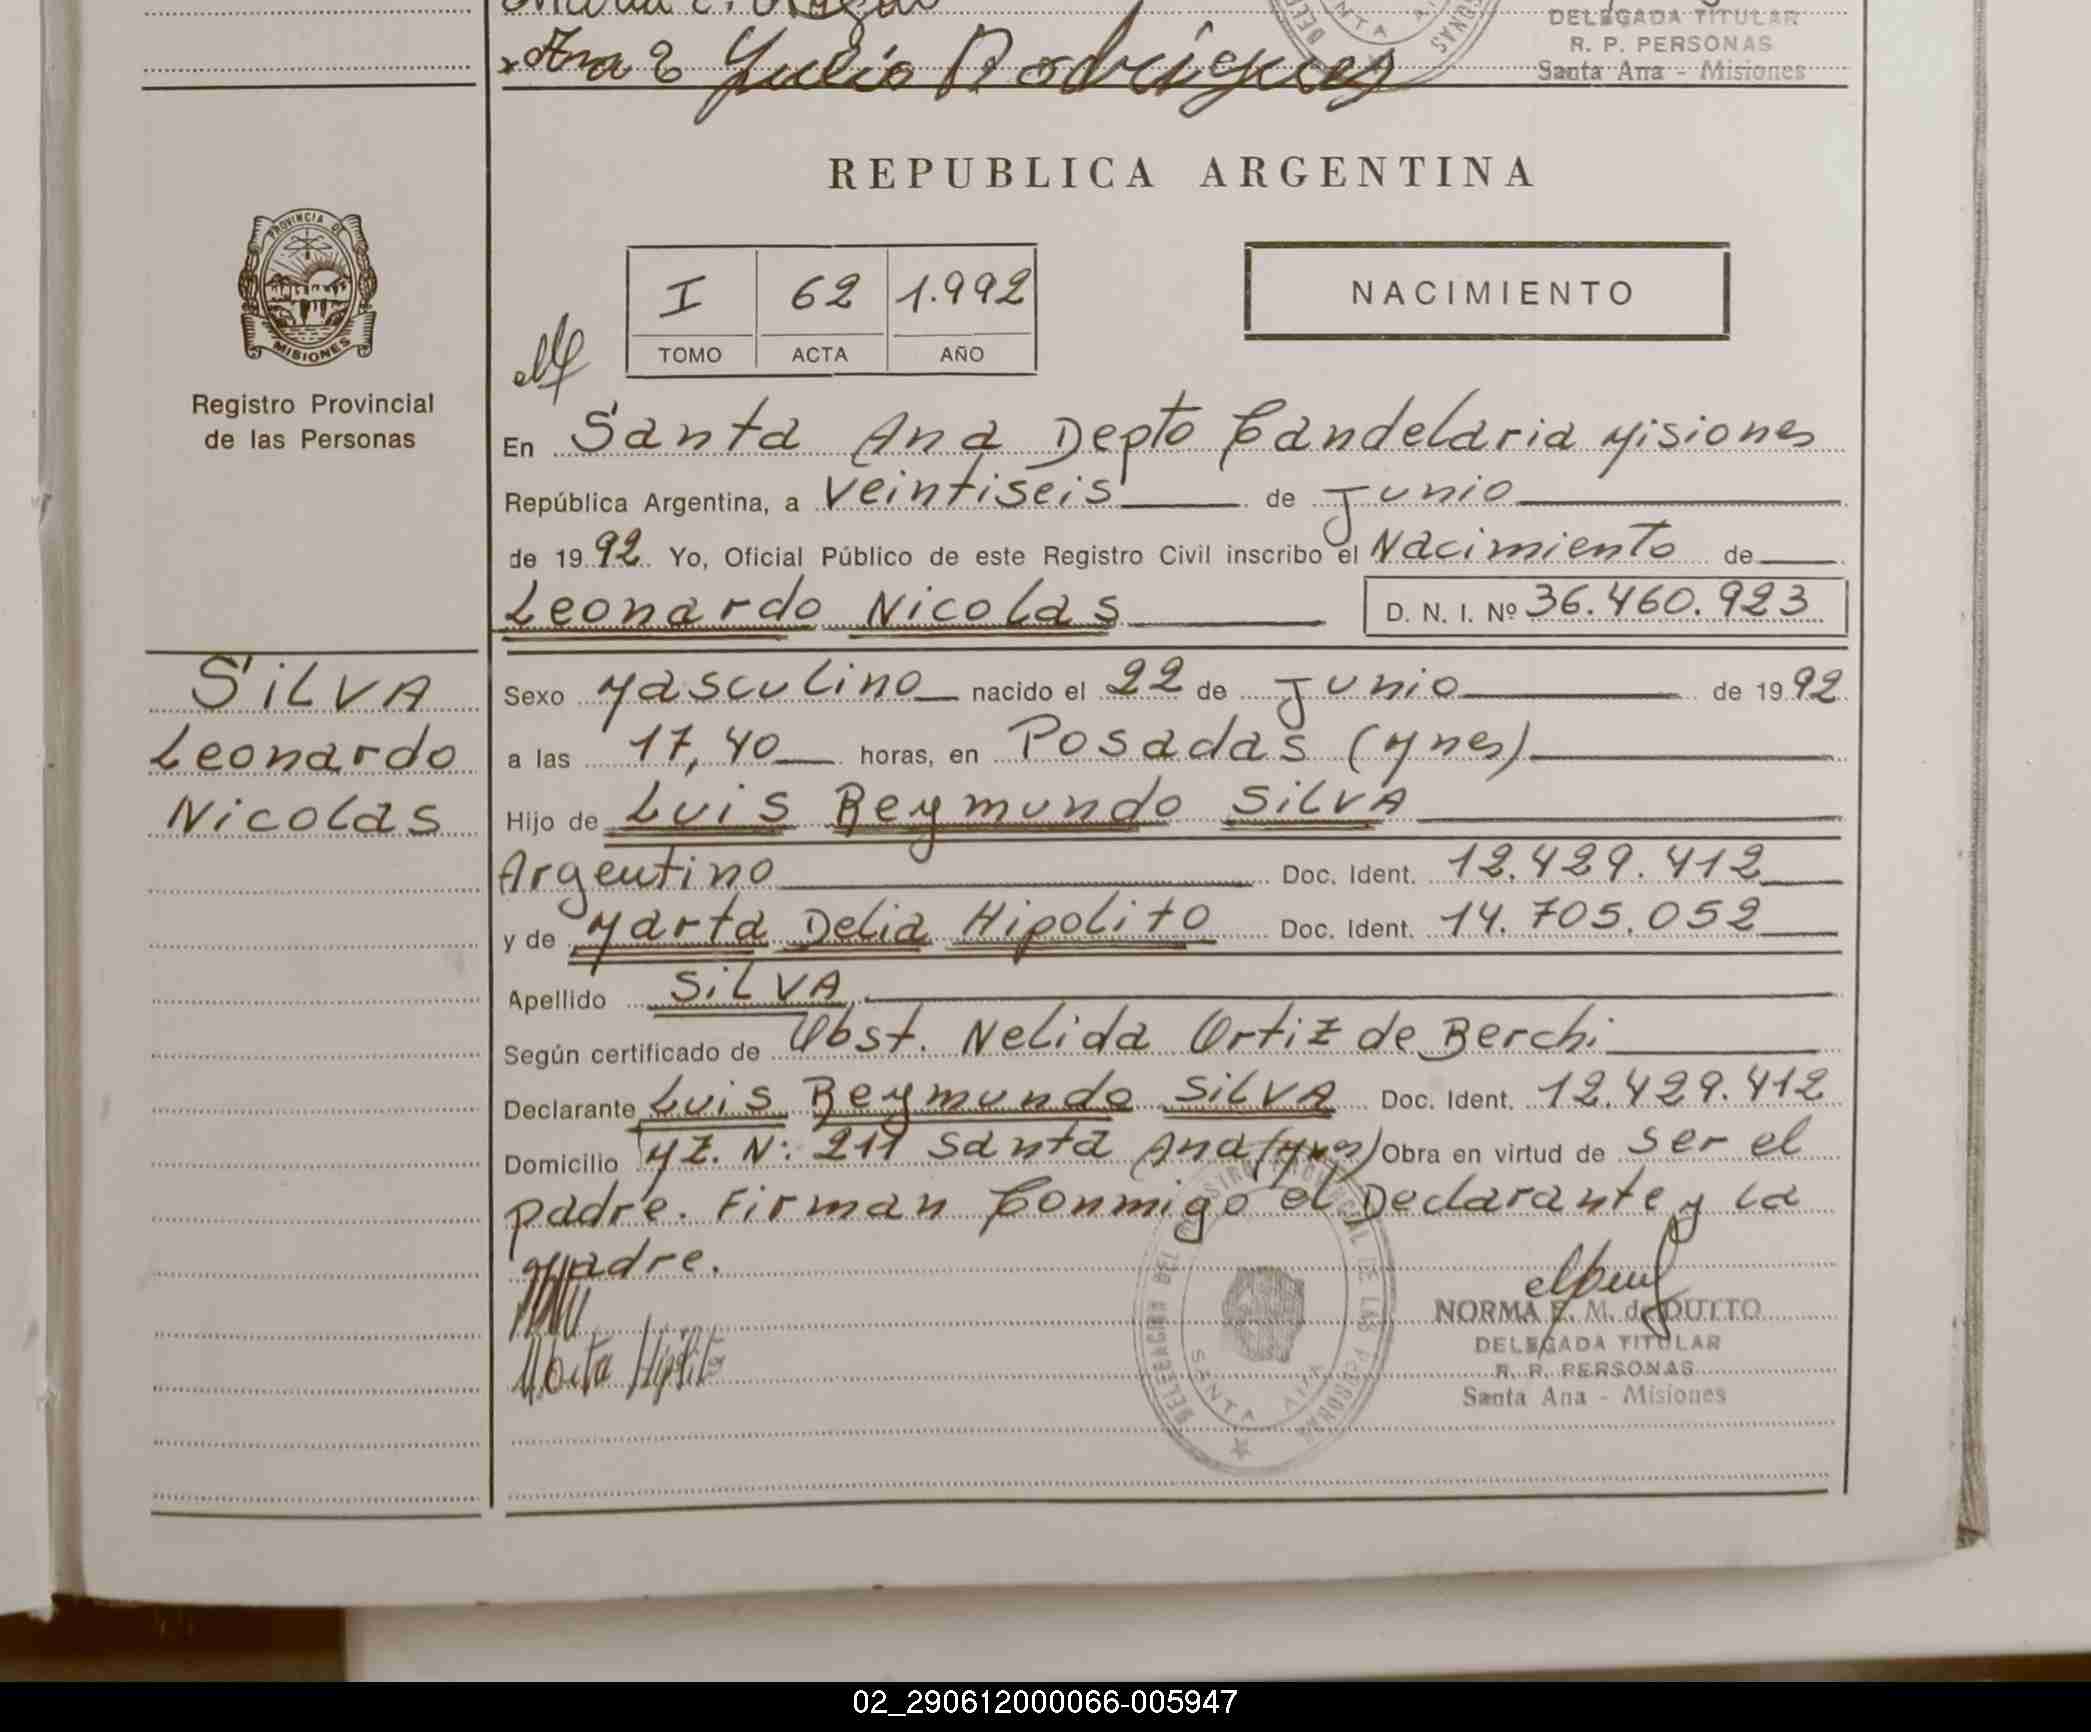 Julio Rodrigues
DELEGADA TITULAR
R. P. PERSONAS
Santa Ana - Misiones
REPUBLICA ARGENTINA
PROVINCIA DE
MISIONES
Registro Provincial
de las Personas
I 62 1.992
TOMO ACTA AÑO
NACIMIENTO
En Santa Ana Depto Candelaria Misiones
República Argentina, a Veintiseis de Junio
de 1992. Yo, Oficial Público de este Registro Civil inscribo el Nacimiento de
Leonardo Nicolas D. N. I. Nº 36.460.923
SiLVA
Leonardo
Nicolas
Sexo Masculino nacido el 22 de Junio de 1992
a las 17,40 horas, en Posadas (Mnes)
Hijo de Luis Reymundo SiLVA
Argentino Doc. Ident. 12.429.412
y de Marta Delia Hipolito Doc. Ident. 14.705.052
Apellido SiLVA
Según certificado de Obst. Nelida Ortiz de Berchi
Declarante Luis Reymundo SiLVA Doc. Ident. 12.429.412
Domicilio Mz. N: 211 Santa Ana (Mnes) Obra en virtud de ser el
padre. Firman Conmigo el Declarante y la
Madre.
Marta Hipolito
NORMA E. M. de DUTTO
DELEGADA TITULAR
R. P. PERSONAS
Santa Ana - Misiones
SANTA ANA
02_290612000066-005947